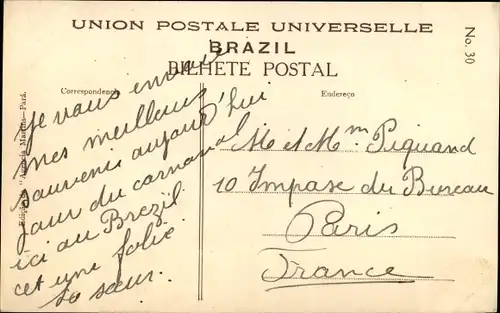 UNION POSTALE UNIVERSELLE
BRAZIL
BILHETE POSTAL
No. 30
Correspondencia
Endereço
Je vous envoi
mes meilleurs
souvenir aujourd'hui
jour du carnaval
ici au Brezil
cet une folie.
La sœur.
M et Mm Piquand
10 Impase du Bureau
Paris
France
Edição da "Agencia Martins—Pará.